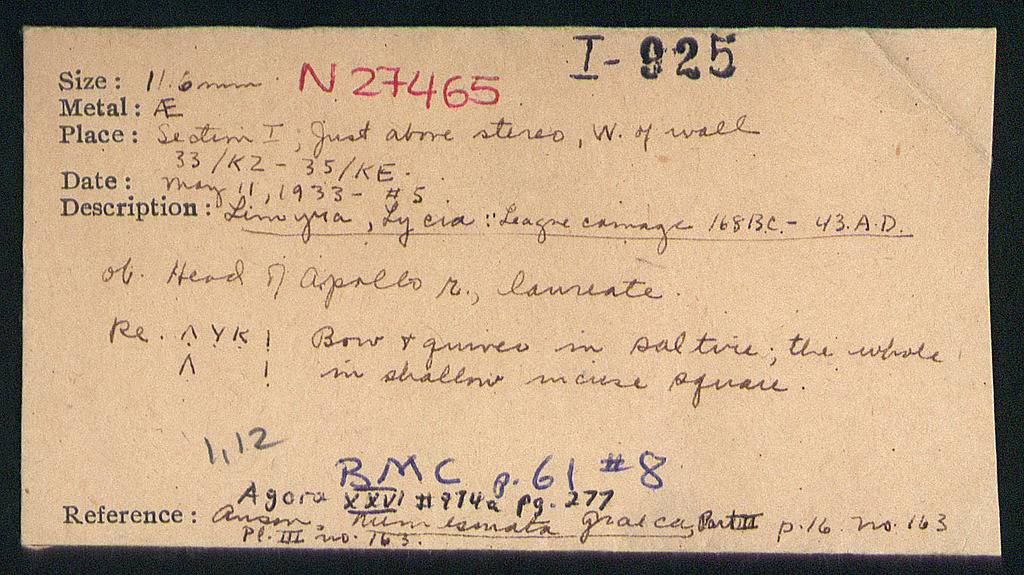 I-925
Size: 11.6mm N 27465
Metal: Æ
Place: Section I; Just above stereo, W. of wall
33/ΚΖ - 35/ΚΕ.
Date: May 11, 1933 - #5
Description: Limyra, Lycia:: League coinage 168 B.C. - 43. A.D.
ob. Head of Apollo r., laureate.
Re. Λ Υ Κ | Bow + quiver in saltire; the whole
Λ | in shallow incuse square.
1,12
BMC p. 61 #8
Agora XXVI #974a pg. 277
Reference: Anson, Numismata Graeca, Part III p. 16. no. 163
Pl. III no. 163.